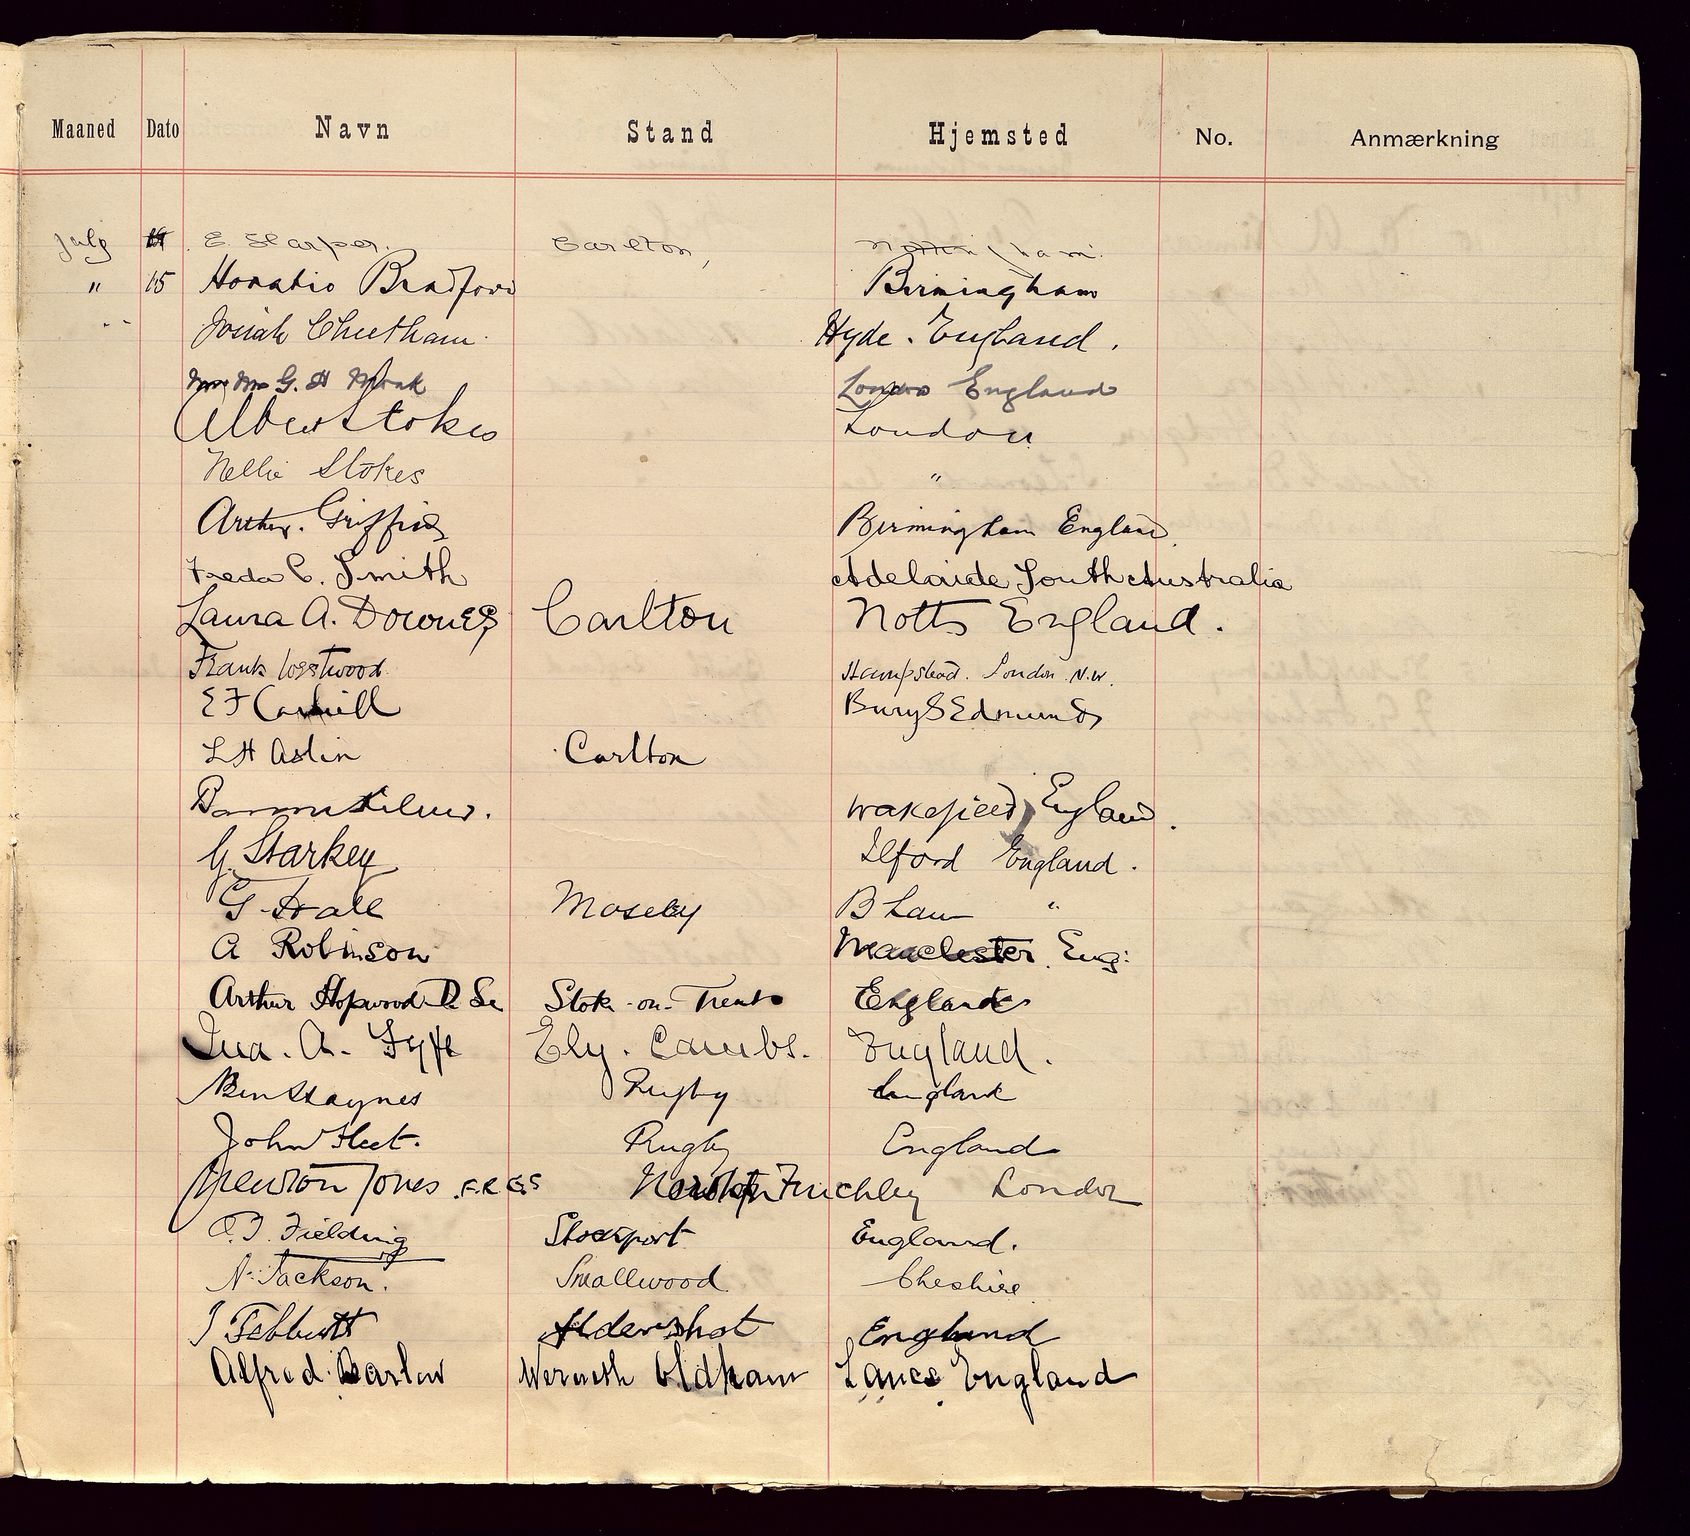 Maaned Dato Navn Stand Hjemsted No. Anmærkning
July E. Carlton,
" 15 Horatio Bradford Birmingham
Josiah Cheetham Hyde. England.
G. H London England
Albert Stokes London
Nellie Stokes "
Arthur Griffiths Birmingham England
Freda C. Smith Adelaide South Australia
Laura A. Downes Carlton Notts England.
Frank Westwood Hampstead. London N.W.
E F Bury S Edmunds
L H Aslin Carlton
Wakefield England.
G. Starkey Ilford England.
G Hall Moseley B'ham "
A Robinson Manchester. Eng:
Arthur Hopwood D. Sc Stoke-on-Trent England
A. Fyfe Ely. Cambs. England.
Ben Haynes Rugby England
John Fleet. Rugby England
Newton Jones. F.R.G.S North Finchley London
Fielding Stockport England.
N. Jackson. Smallwood Cheshire
J Tebbutt Aldershot England
Alfred Barlow Werneth Oldham Lancs England